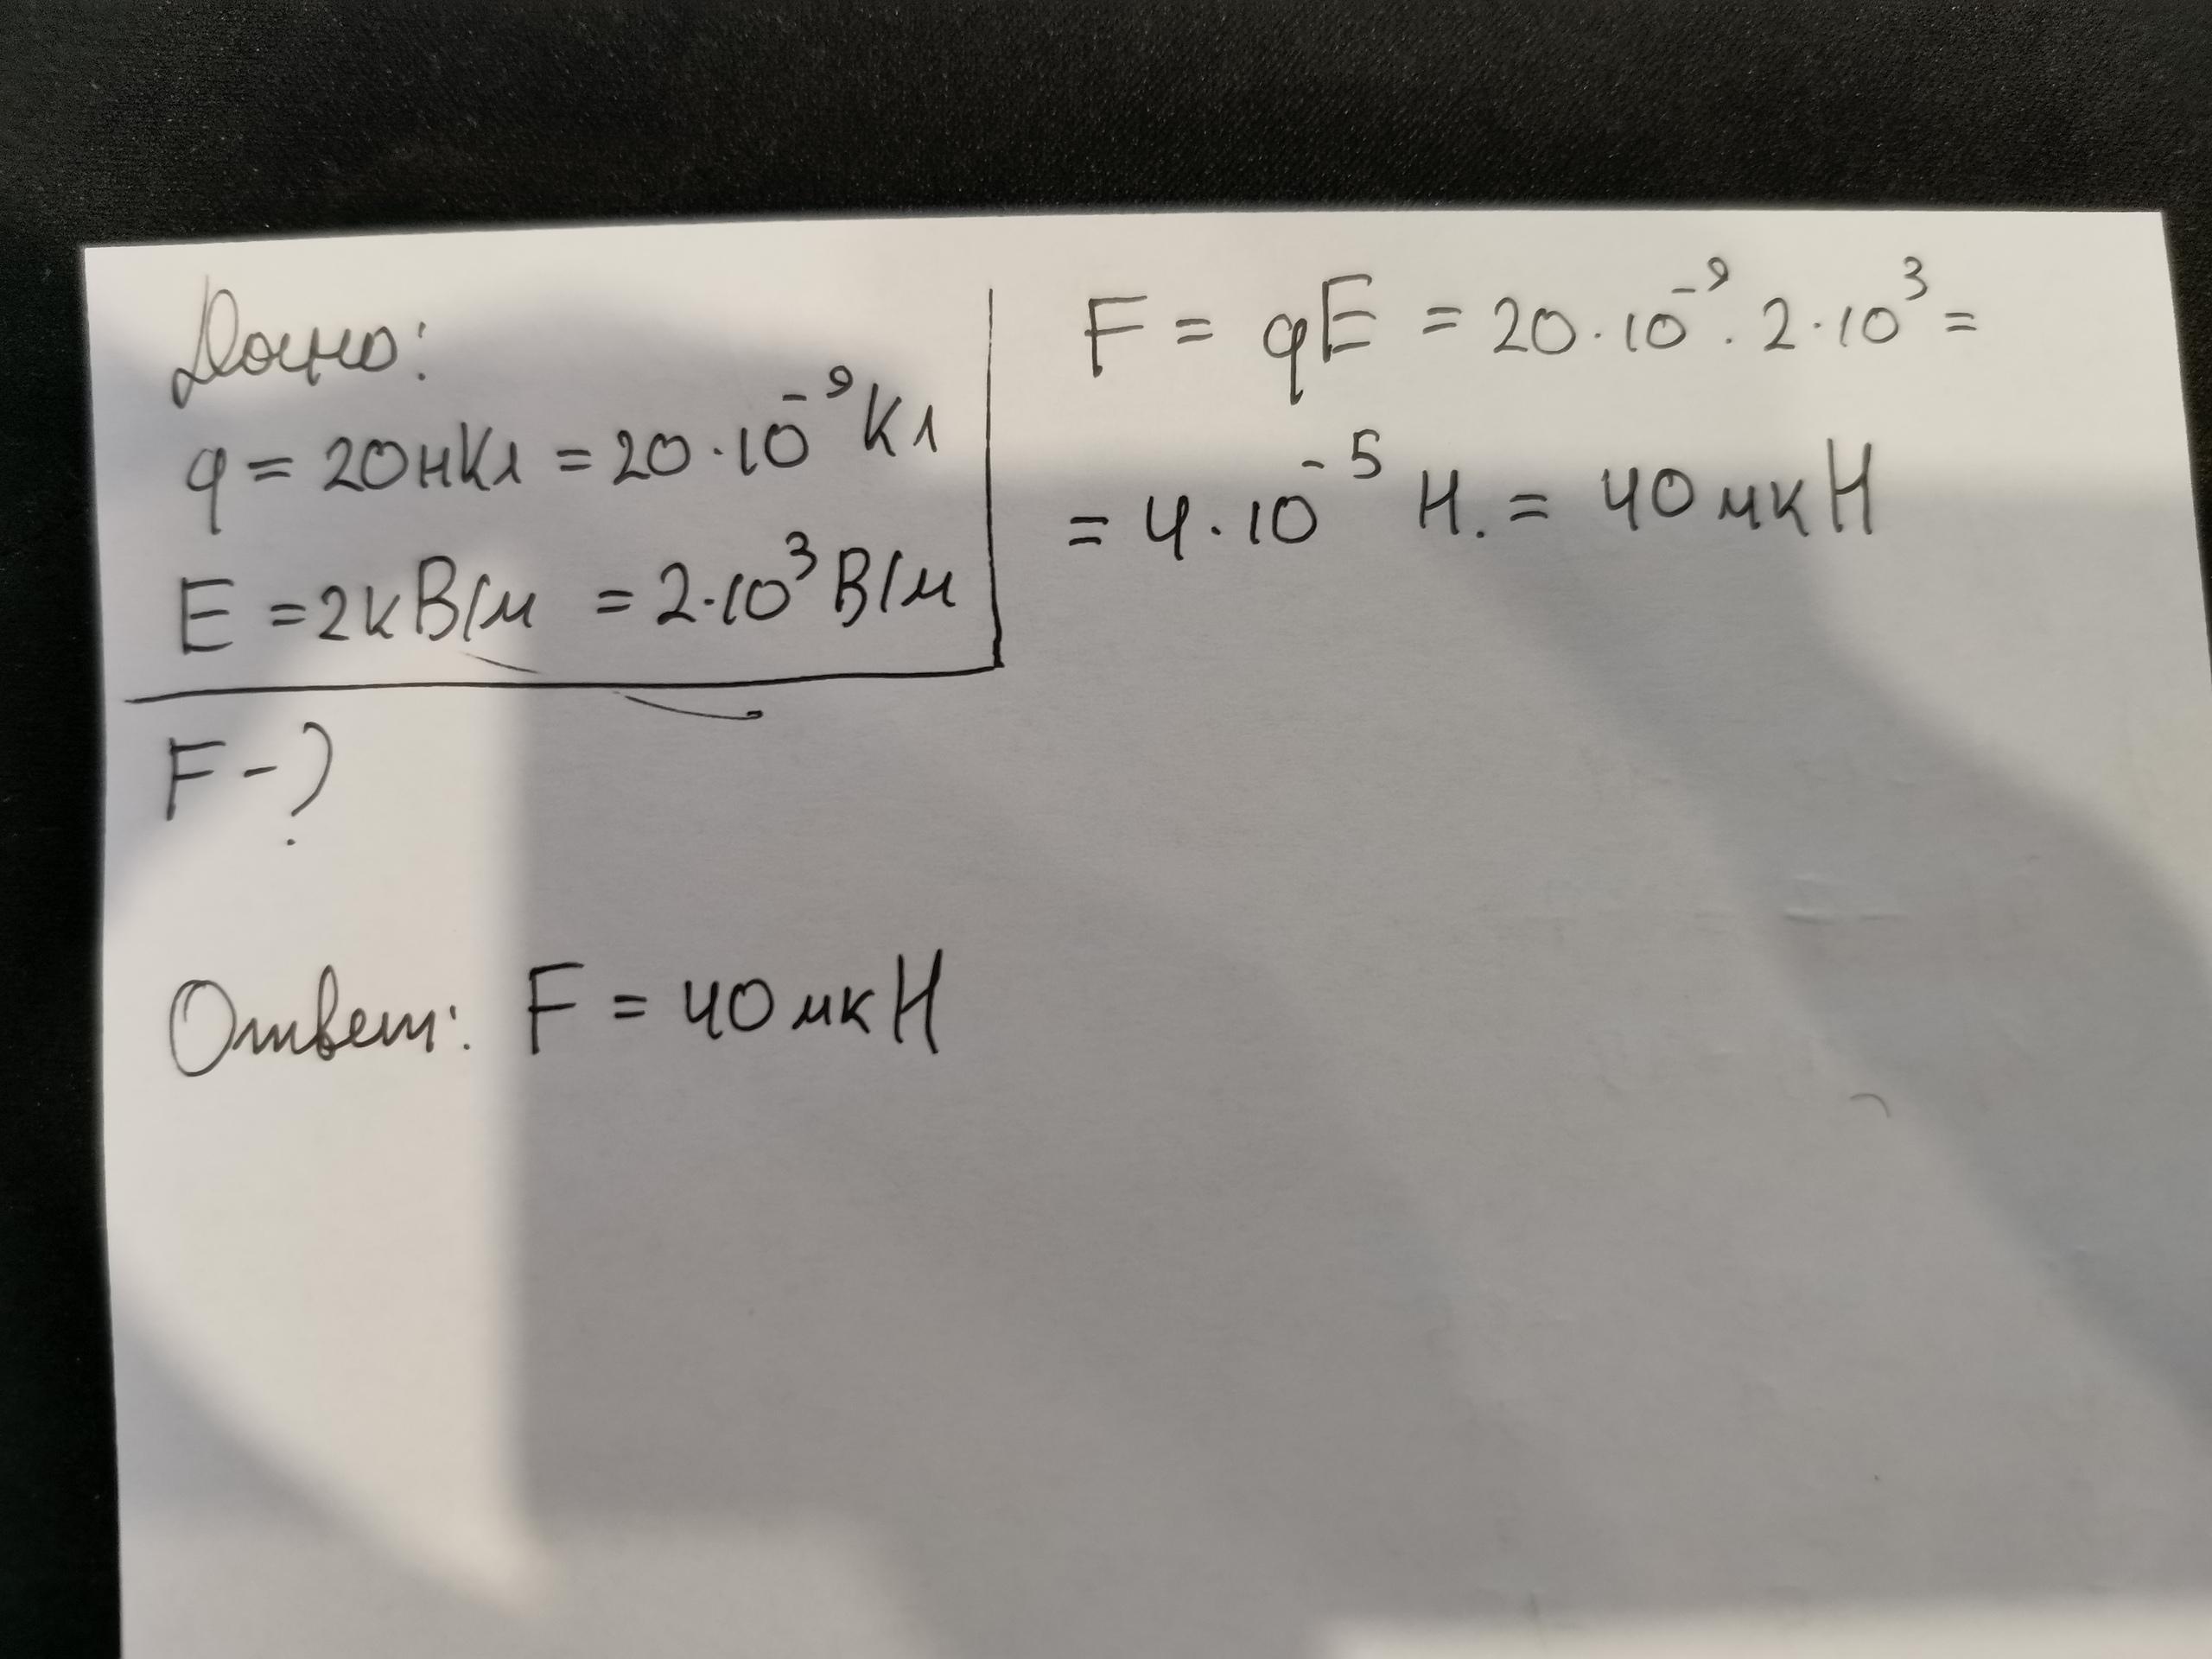 Дано:
q = 20нКл = 20·10⁻⁹ Кл
E = 2кВ/м = 2·10³ В/м
F - ?
F = qE = 20·10⁻⁹·2·10³ =
= 4·10⁻⁵ Н. = 40 мкН
Ответ: F = 40 мкН